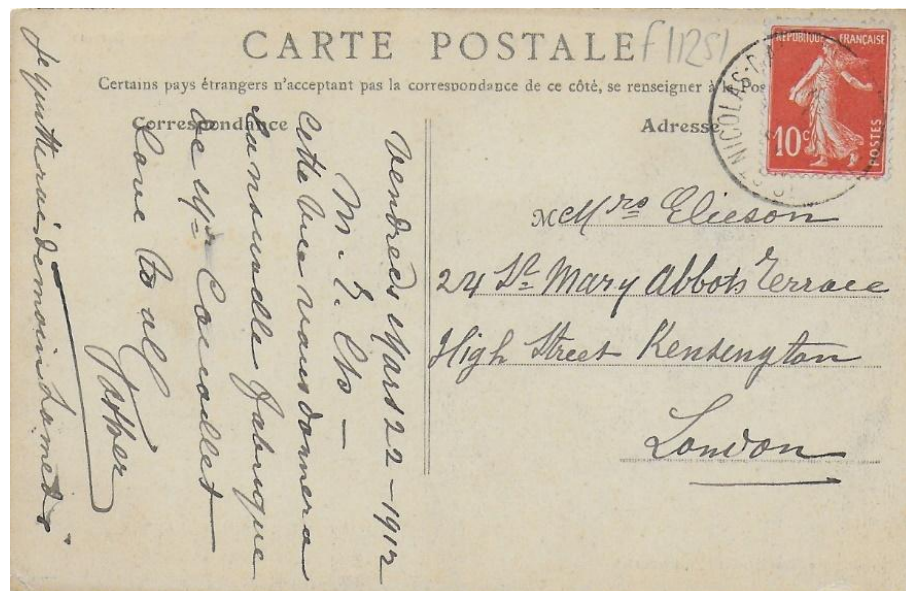 CARTE POSTALE
f1251
Certains pays étrangers n'acceptant pas la correspondance de ce côté, se renseigner à la Pos
Correspondance
Adresse
RÉPUBLIQUE FRANÇAISE
10c
POSTES
NICOLAS
Vendredi Mars 22 - 1912
M. E. Cts -
Cette vue vous donnera
la nouvelle fabrique
de Mr
Love to all
Father
Je quitterai demain Samedi
M Mrs Elieson
24 St Mary Abbots Terrace
High Street Kensington
London